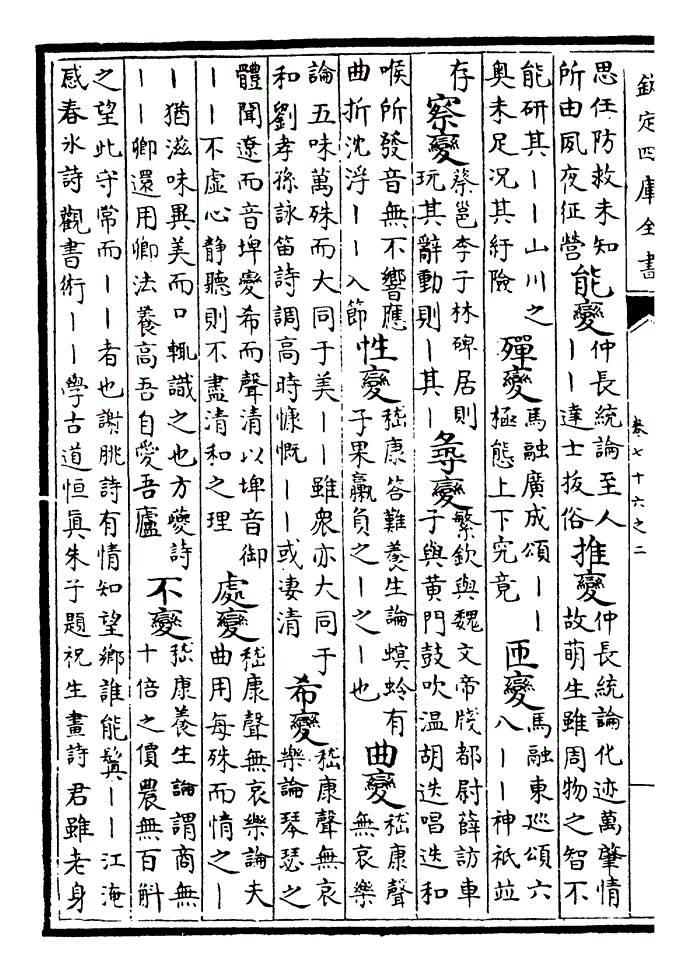 欽定四庫全書
卷七十六之二
思任防救未知
所由夙夜征營
能變
仲長統論至人
——達士拔俗
推變
仲長統論化迹萬肇情
故萌生雖周物之智不
能研其——山川之
奥未足况其紆險
殫變
馬融廣成頌——
極態上下究竟
匝變
馬融東巡頌六
八——神祇並
存
察變
蔡邕李子林碑居則
玩其辭動則—其—
尋變
繁欽與魏文帝牋都尉薛訪車
子與黄門鼓吹温胡迭唱迭和
喉所發音無不響應
曲折沈浮——入節
性變
嵇康答難養生論螟蛉有
子果臝負之—之—也
曲變
嵇康聲
無哀樂
論五味萬殊而大同于美——雖衆亦大同于
和劉孝孫詠笛詩調高時慷慨——或淒清
希變
嵇康聲無哀
樂論琴瑟之
體聞遼而音埤變希而聲清以埤音御
——不虛心静聽則不盡清和之理
處變
嵇康聲無哀樂論夫
曲用每殊而情之—
—猶滋味異美而口輒識之也方夔詩
——卿還用卿法養高吾自愛吾廬
不變
嵇康養生論謂商無
十倍之價農無百斛
之望此守常而——者也謝朓詩有情知望鄉誰能鬒——江淹
感春冰詩觀書術——學古道恒真朱子題祝生畫詩 君雖老身